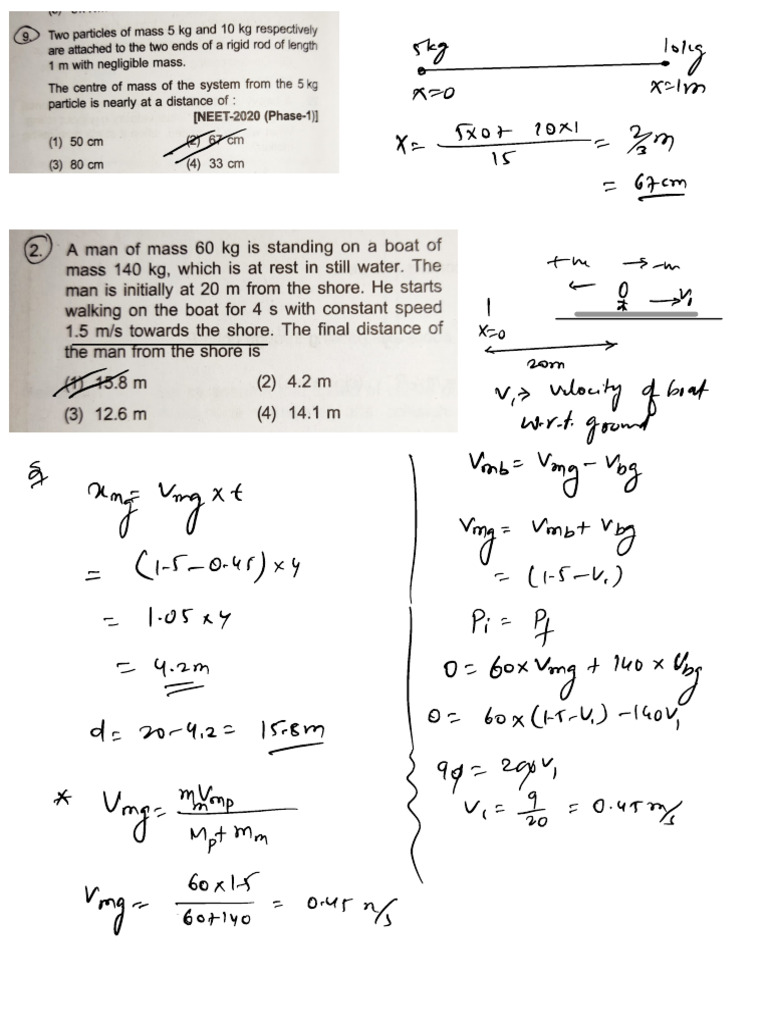 9. Two particles of mass 5 kg and 10 kg respectively
are attached to the two ends of a rigid rod of length
1 m with negligible mass.
The centre of mass of the system from the 5 kg
particle is nearly at a distance of :
[NEET-2020 (Phase-1)]
(1) 50 cm (2) 67 cm
(3) 80 cm (4) 33 cm
5kg 10kg
x=0 x=1m
x = (5x0 + 10x1)/15 = 2/3 m
= 67cm
2. A man of mass 60 kg is standing on a boat of
mass 140 kg, which is at rest in still water. The
man is initially at 20 m from the shore. He starts
walking on the boat for 4 s with constant speed
1.5 m/s towards the shore. The final distance of
the man from the shore is
(1) 15.8 m (2) 4.2 m
(3) 12.6 m (4) 14.1 m
+ve → -ve
← → V₁
x=0
20m
V₁ → velocity of boat
w.r.t. ground
Vmb = Vmg - Vbg
Vmg = Vmb + Vbg
= (1.5 - V₁)
Pi = Pf
0 = 60 x Vmg + 140 x Vbg
0 = 60 x (1.5 - V₁) - 140V₁
90 = 200V₁
V₁ = 9/20 = 0.45 m/s
xmg = Vmg x t
= (1.5 - 0.45) x 4
= 1.05 x 4
= 4.2m
d = 20 - 4.2 = 15.8m
* Vmg = mmVmp / (Mp + mm)
Vmg = (60 x 1.5)/(60+140) = 0.45 m/s